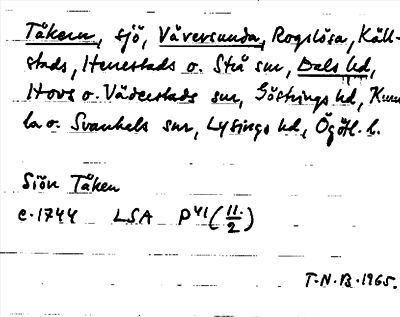 Tåkern, sjö, Väversunda, Rogslösa, Käll-
stads, Herrestads o. Strå snr, Dals hd,
Hovs o. Väderstads snr, Göstrings hd, Kum
la o. Svanhals snr, Lysings hd, Ögötl. l.
Siön Tåken
c. 1744 LSA P 41 (11/2)
T.N.B. 1965.